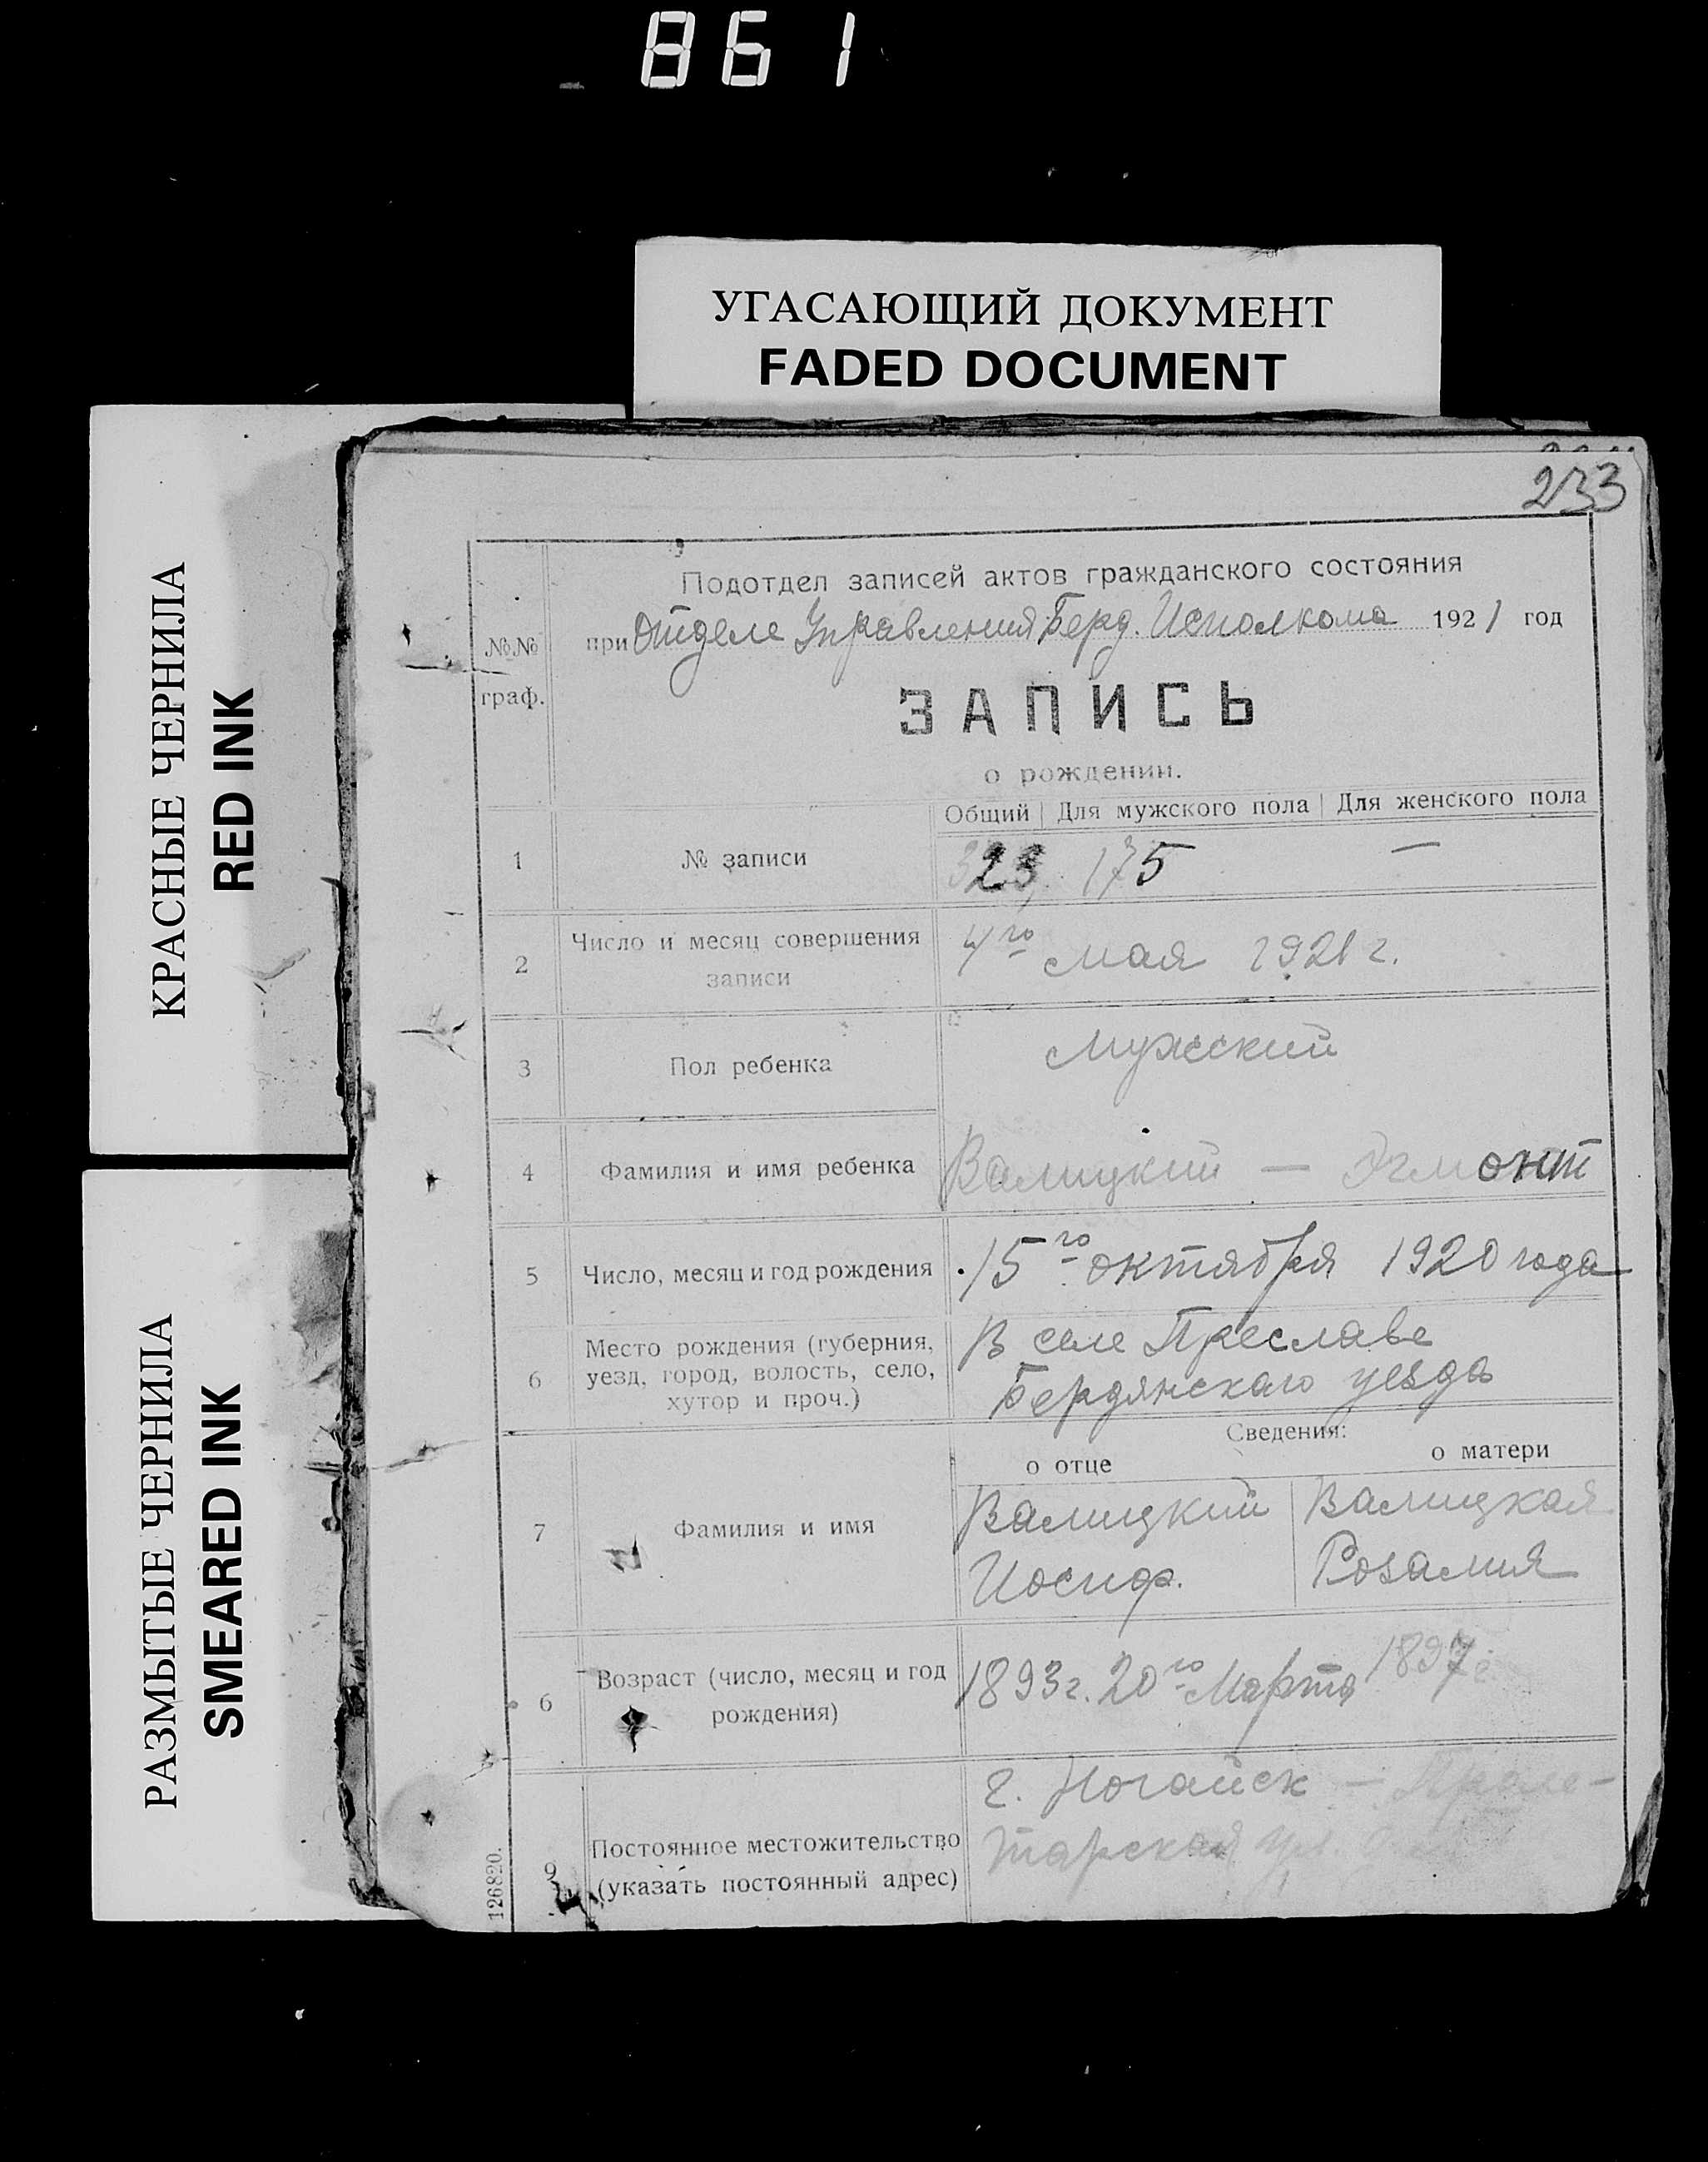 861
УГАСАЮЩИЙ ДОКУМЕНТ
FADED DOCUMENT
КРАСНЫЕ ЧЕРНИЛА
RED INK
РАЗМЫТЫЕ ЧЕРНИЛА
SMEARED INK
233
Подотдел записей актов гражданского состояния
при Отделе Управления Берд. Исполкома 1921 год
№№
граф.
ЗАПИСЬ
о рождении.
Общий | Для мужского пола | Для женского пола
1 № записи 323, 175 —
2 Число и месяц совершения
записи
4го мая 1921 г.
3 Пол ребенка Мужский
4 Фамилия и имя ребенка Валицкий — Эгмонт
5 Число, месяц и год рождения 15го октября 1920 года
6 Место рождения (губерния,
уезд, город, волость, село,
хутор и проч.)
В селе Преславе
Бердянского уезда
Сведения:
о отце о матери
7 Фамилия и имя
Валицкий Валицкая
Иосиф. Розалия
6 Возраст (число, месяц и год
рождения)
1893 г. 20го Марта 1897 г.
9 Постоянное местожительство
(указать постоянный адрес)
г. Ногайск — Проле-
тарская ул.
126820.